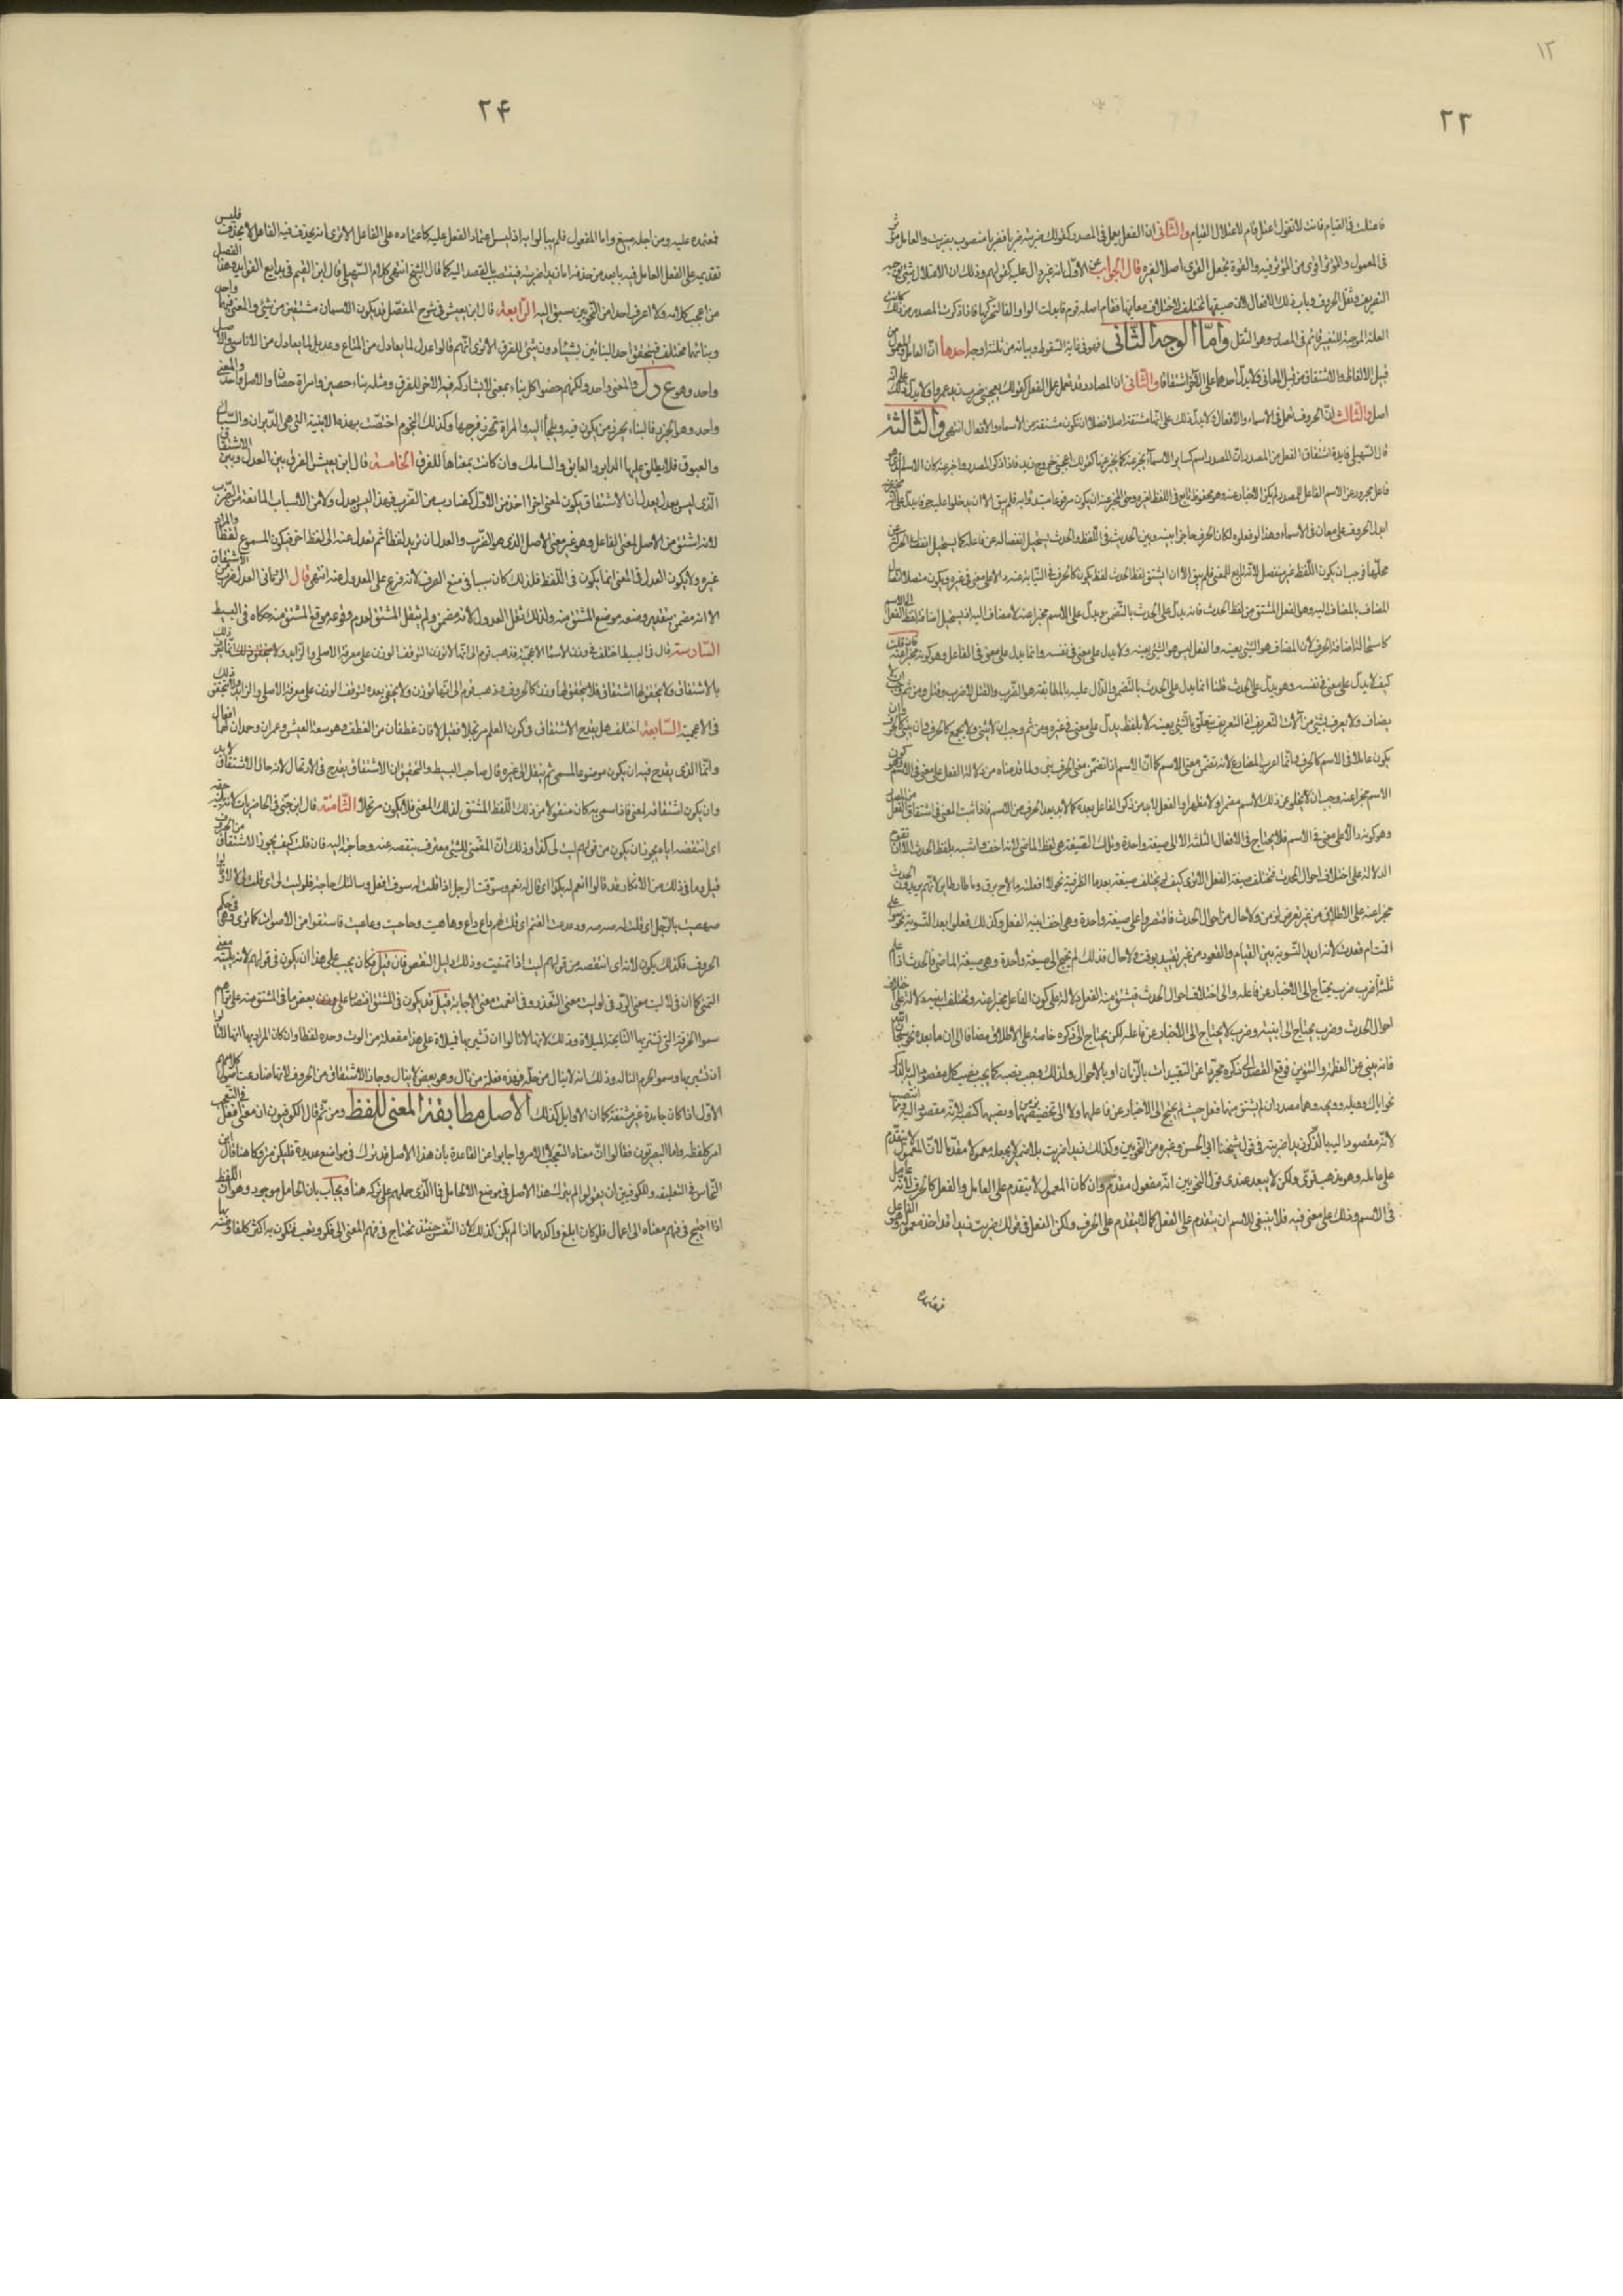 ١٢
٢٣
فاعتلت فى القيام فانت لا تقول اعتل قام لاعتلال القيام والثانى ان الفعل يعمل فى المصدر كقولك ضربته ضربا فضربا منصوب بضربت والعامل مؤثر
فى المعمول والمؤثر اقوى من المؤثر فيه والقوة تجعل القوى اصلا لغيره قال الجواب عن الاول انه غير دال عليه كقولهم وذلك ان الاعتلال شئ يوجبه
التصريف وثقل الحروف وباب ذلك الافعال لان صيغها تختلف لاختلاف معانيها فقام اصله قوم فابدلت الواو الفا لتحركها فاذا ذكرت المصدر من ذلك كانت
العلة الموجبة للتغيير قائم فى المصدر وهو الثقل واما الوجه الثانى فهو فى غاية السقوط وبيانه من ثلثة اوجه احدها ان العامل والمعمول من
قبيل الالفاظ والاشتقاق من قبيل المعانى ولا يدل احدهما على الآخر اشتقاقا والثانى ان المصادر قد تعمل عمل الفعل كقولك يعجبنى ضرب زيد عمروا ولا يدل ذلك على انه
اصل والثالث ان الحروف تعمل فى الاسماء والافعال ولا يدل ذلك على انها مشتقة اصلا فضلا ان تكون مشتقة من الاسماء والافعال انتهى والثالثة
قال السهيلى فايدة اشتقاق الفعل من المصدر ان المصدر اسم كساير الاسماء يخبر عنه كما يخبر عنها كقولك اعجبنى خروج زيد فاذا ذكر المصدر واخبر عنه كان الاسم الذى هو
فاعل مجرورا عن الاسم الفاعل للمصدر لم يكن الاخبار عنه وهو مخفوظ تابع فى اللفظ لغيره وحق المخبر عنه ان يكون مرفوعا مبتدأ به فلم يبق الا ان يدخلوا عليه حرفا يدل على انه مخبر عنه
ابدا الحروف على معان فى الاسماء وهذا لو فعلوه لكان الحرف حاجزا بينه وبين الحديث فى اللفظ والحدث يستحيل انفصاله عن فاعله كما يستحيل انفصال الحركة عن
محلها فوجب ان يكون اللفظ غير منفصل لانه تابع للمعنى فلم يبق الا ان اشتق لفظ الحدث لفظ يكون كالحرف فى النيابة عنه دالا على معنى فى غيره ويكون متصلا اتصال
المضاف بالمضاف اليه وهو الفعل المشتق من لفظ الحدث فانه يدل على الحدث بالتضمن ويدل على الاسم مخبرا عنه لا مضاف اليه اذ يستحيل اضافة لفظ الفعل الى الاسم
كاستحالة اضافة الحرف لان المضاف هو الشئ بعينه والفعل ليس هو الشئ بعينه ولا يدل على معنى فى نفسه وانما يدل على معنى فى الفاعل وهو كونه مخبرا عنه فان قلت
كيف لا يدل على معنى فى نفسه وهو يدل على الحدث قلنا انما يدل على الحدث بالتضمن والدال عليه بالمطابقة هو الضرب والقتل لا ضرب وقتل ومن ثم وجب ان لا
يضاف ولا يعرف بشئ من آلات التعريف اذ التعريف يتعلق بالشئ بعينه لا بلفظ يدل على معنى فى غيره ومن ثم وجب ان لا يثنى ولا يجمع كالحرف وان يبنى كالحرف وان
يكون عاملا فى الاسم كالحرف وانما اعرب المضارع لانه تضمن معنى الاسم كما ان الاسم اذا تضمن معنى الحرف بنى ولما قدمناه من دلالة الفعل على معنى فى الاسم وهو كون
الاسم مخبرا عنه وجب ان لا يخلو عن ذلك الاسم مضمرا ولا مظهرا والفعل لابد من ذكر الفاعل بعده كما لابد بعد الحرف من الاسم فاذا ثبت المعنى فى اشتقاق الفعل من المصدر
وهو كونه دالا على معنى فى الاسم فلا يحتاج فى الافعال الثلثة الا الى صيغة واحدة وتلك الصيغة هى لفظ الماضى لانه اخف واشبه بلفظ الحدث الا ان تقوم
الدلالة على اختلاف احوال الحدث فتختلف صيغة الفعل الا ترى كيف لم تختلف صيغته بعد ما الظرفية نحو لا افعله ما لاح برق وما طار طاير لانهم يريدون الحديث
مخبرا عنه على الاطلاق من غير تعرض لزمن ولا حال من احوال الحدث فاقتصروا على صيغة واحدة وهى اخف ابنية الفعل وكذلك فعلوا بعد التسوية نحو سواء على
اقمت ام قعدت لانه اريد التسوية بين القيام والقعود من غير تقييد بوقت ولا حال فلذلك لم يحتج الى صيغة واحدة وهى صيغة الماضى فالحدث اذا على
ثلثة اضرب ضرب يحتاج الى الاخبار عن فاعله والى اختلاف احوال الحدث فيشتق منه الفعل دلالة على كون الفاعل مخبرا عنه وتختلف ابنيته دلالة على اختلاف
احوال الحدث وضرب يحتاج الى ابنيته وضرب لا يحتاج الى الاخبار عن فاعله لكن يحتاج الى ذكره خاصة على الاطلاق مضافا الى ان ما بعده نحو سبحان الله
فانه ينبئ عن العظمة والتنزيه فوقع القصد الى ذكره مجردا عن التقييدات بالزمان او بالاحوال ولذلك وجب نصبه كما يجب نصب كل مقصود اليه بالذكر
نحو اياك وويله وويحه وهما مصدران لم يشتق منهما فعل حيث لم يحتج الى الاخبار عن فاعلهما ولا الى تخصيصهما بزمن ونصبهما كنصبه لانه مقصود اليه ومما انتصب
لانه مقصود اليه بالذكر زيدا ضربته فى قول شيخنا ابى الحسن وغيره من النحويين وكذلك زيدا ضربت بلا ضمير لا يجعله معمولا مقدما لان المعمول لا يتقدم
على عامله وهو مذهب قوى ولكن لا يبعد عندى قول النحويين انه مفعول مقدم وان كان المعمول لا يتقدم على العامل والفعل كالحرف لانه عامل
فى الاسم وذلك على معنى فيه فلا ينبغى للاسم ان يتقدم على الفعل كما لا يتقدم على الحرف ولكن الفعل فى قولك ضربت زيدا قد اخذ معموله وهو الفاعل
٢۴
فمعتمده عليه ومن اجله صيغ واما المفعول فلم يبالوا به اذ ليس اعتماد الفعل عليه كاعتماده على الفاعل الا ترى انه يحذف فيه الفاعل لا يحذف فليس
تقديمه على الفعل العامل فيه بابعد من حذفه اما زيدا ضربته فينتصب بالقصد اليه كما قال الشيخ انتهى كلام السهيلى قال ابن القيم فى بدايع الفوايد وهذا الفصل
من اعجب كلامه ولا اعرف احدا من النحويين سبق اليه الرابعة قال ابن يعيش فى شرح المفصل قد يكون الاسمان مشتقين من شئ والمعنى فيهما واحد
وبناؤهما مختلف فيختص احد البنائين بشئ دون شئ للفرق الا ترى انهم قالوا عدل لما يعادل من المتاع وعديل لما يعادل من الاناسى والاصل
واحد وهو ع د ل والمعنى واحد ولكنهم خصوا كل بناء بمعنى لا يشاركه فيه الاخر للفرق ومثله بناء حصين وامراة حصان والاصل واحد والمعنى
واحد وهو الحرز فالبناء يحرز من يكون فيه ويلجأ اليه والمراة تحرز فرجها وكذلك النجوم اختصت بهذه الابنية التى هى الدبران والسماك
والعيوق فلا يطلق عليها الدابر والعايق والسامك وان كانت بمعناها للفرق الخامسة قال ابن يعيش الفرق بين العدل وبين الاشتقاق
الذى ليس بعدل يعدل ان الاشتقاق يكون لمعنى اخر اخذ من الاول كضارب من الضرب فهذا ليس بعدل ولا من الاسباب المانعة من الصرف
لانه اشتق من الاصل لمعنى الفاعل وهو غير معنى الاصل الذى هو الضرب والعدل ان تريد لفظا ثم تعدل عنه الى لفظ اخر فيكون المسموع لفظا والمراد
غيره ولا يكون العدل فى المعنى انما يكون فى اللفظ فلذلك كان سببا فى منع الصرف لانه فرع على المعدول عنه انتهى قال الرمانى العدل ضرب من الاشتقاق
الا انه مضمن بتقدير وضعه موضع المشتق منه ولذلك ثقل المعدول لانه مضمن ولم يثقل المشتق لعدم وقوعه موقع المشتق منه حكاه فى البسيط
السادسة قال فى البسيط اختلف فى وزن الاسماء الاعجمية فذهب قوم الى انها لا توزن لتوقف الوزن على معرفة الاصلى والزايد ولا يتحقق ذلك انما يعرف
بالاشتقاق ولا يتحقق لها اشتقاق فلا يتحقق لها وزن كالحروف وذهب قوم الى انها توزن ولا يخفى بعده لتوقف الوزن على معرفة الاصلى والزايد ولا يتحقق ذلك
فى الاعجمية السابعة اختلف هل يقدح الاشتقاق فى كون العلم مرتجلا فقيل لا فان غطفان من الغطف وهو سعة العيش وعمران وحمدان لهما افعال
وانما الذى يقدح فيه ان يكون موضوعا لمسمى ثم ينقل الى غيره وقال صاحب البسيط والتحقيق ان الاشتقاق يقدح فى الارتجال لانه حال الاشتقاق لا بد
وان يكون اشتقاقه لمعنى فاذا سمى به كان منقولا من ذلك اللفظ المشتق لذلك المعنى فلا يكون مرتجلا الثامنة قال ابن جنى فى الخاطريات لاته يليته حقه
اى انتقصه اياه يجوز ان يكون من قولهم ليت لى كذا وذلك ان المتمنى للشئ معترف بنقصه عنه وحاجته اليه فان قلت كيف يجوز الاشتقاق من الحرف
قيل وما فى ذلك من الانكار وقد قالوا انعم له بكذا اى قال له نعم وسوفت الرجل اذا قلت له سوف افعل وسالتك حاجة فلوليت لى اى قلت لى لولا
صهصيت بالرجل اى قلت له صه صه ودعدعت الغنم اى قلت لهم داع داع وهاهيت وحاحيت وعاعيت فاستقوا من الاصوات كما ترى وهى فى حكم
الحروف فكذلك يكون لاته اى انتقصه من قولهم ليت اذا تمنيت وذلك دليل النقص فان قيل فكان يجب على هذا ان يكون فى قولهم لاته يليته معنى
التمنى كما ان فى لاليت معنى الرد فى لوليت معنى التعذر وفى انعمت معنى الاجابة قيل قد يكون فى المشتق اقتصار على بعض ما فى المشتق منه على تراهم
سموا الخرقة التى تشير بها النائحة الميلاة وذلك لانها لا تالوا ان تشير بها فميلاة على هذا مفعلة من الوت وحده لفظا وان كان المراد بها انها لا تالوا
ان تشير بها وسموا الحرم النالة وذلك انه لا ينال من حله فهذه فعلة من نال وهو بعض لا ينال وجاز الاشتقاق من الحروف لانها ضارعت اصول كلامهم
الاول اذا كان جامدة غير مشتقة كما ان الاوايل كذلك الاصل مطابقة المعنى للفظ ومن ثم قال الكوفيون ان معنى افعل به فى التعجب
امر كلفظه واما البصريون فقالوا ان معناه التعجب لا الامر واجابوا عن القاعدة بان هذا الاصل قد ترك فى مواضع عديدة فليكن متروكا هنا قال ابن
النحاس فى التعليقة وللكوفيين ان يقولوا لم يترك هذا الاصل فى موضع الا لحامل فما الذى حملهم على تركه هنا ويجاب بان الحامل موجود وهو ان اللفظ
اذا احتيج فى فهم معناه الى اعمال فكر كان ابلغ واكد مما اذا لم يكن كذلك لان النفس حينئذ تحتاج فى فهم المعنى الى فكر وتعب فتكون به اكثر كلفا وضنة بها